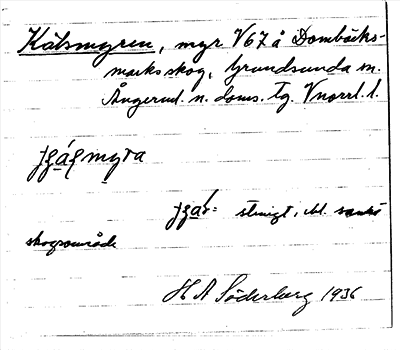 Kälsmyren, myr V67 å Dombäcks-
marks skog, Grundsunda sn.
Ångerml. n. doms. tg. Vnorrl. l.
myra
stenigt, bl. sankt
skogsområde
H A Söderberg 1936